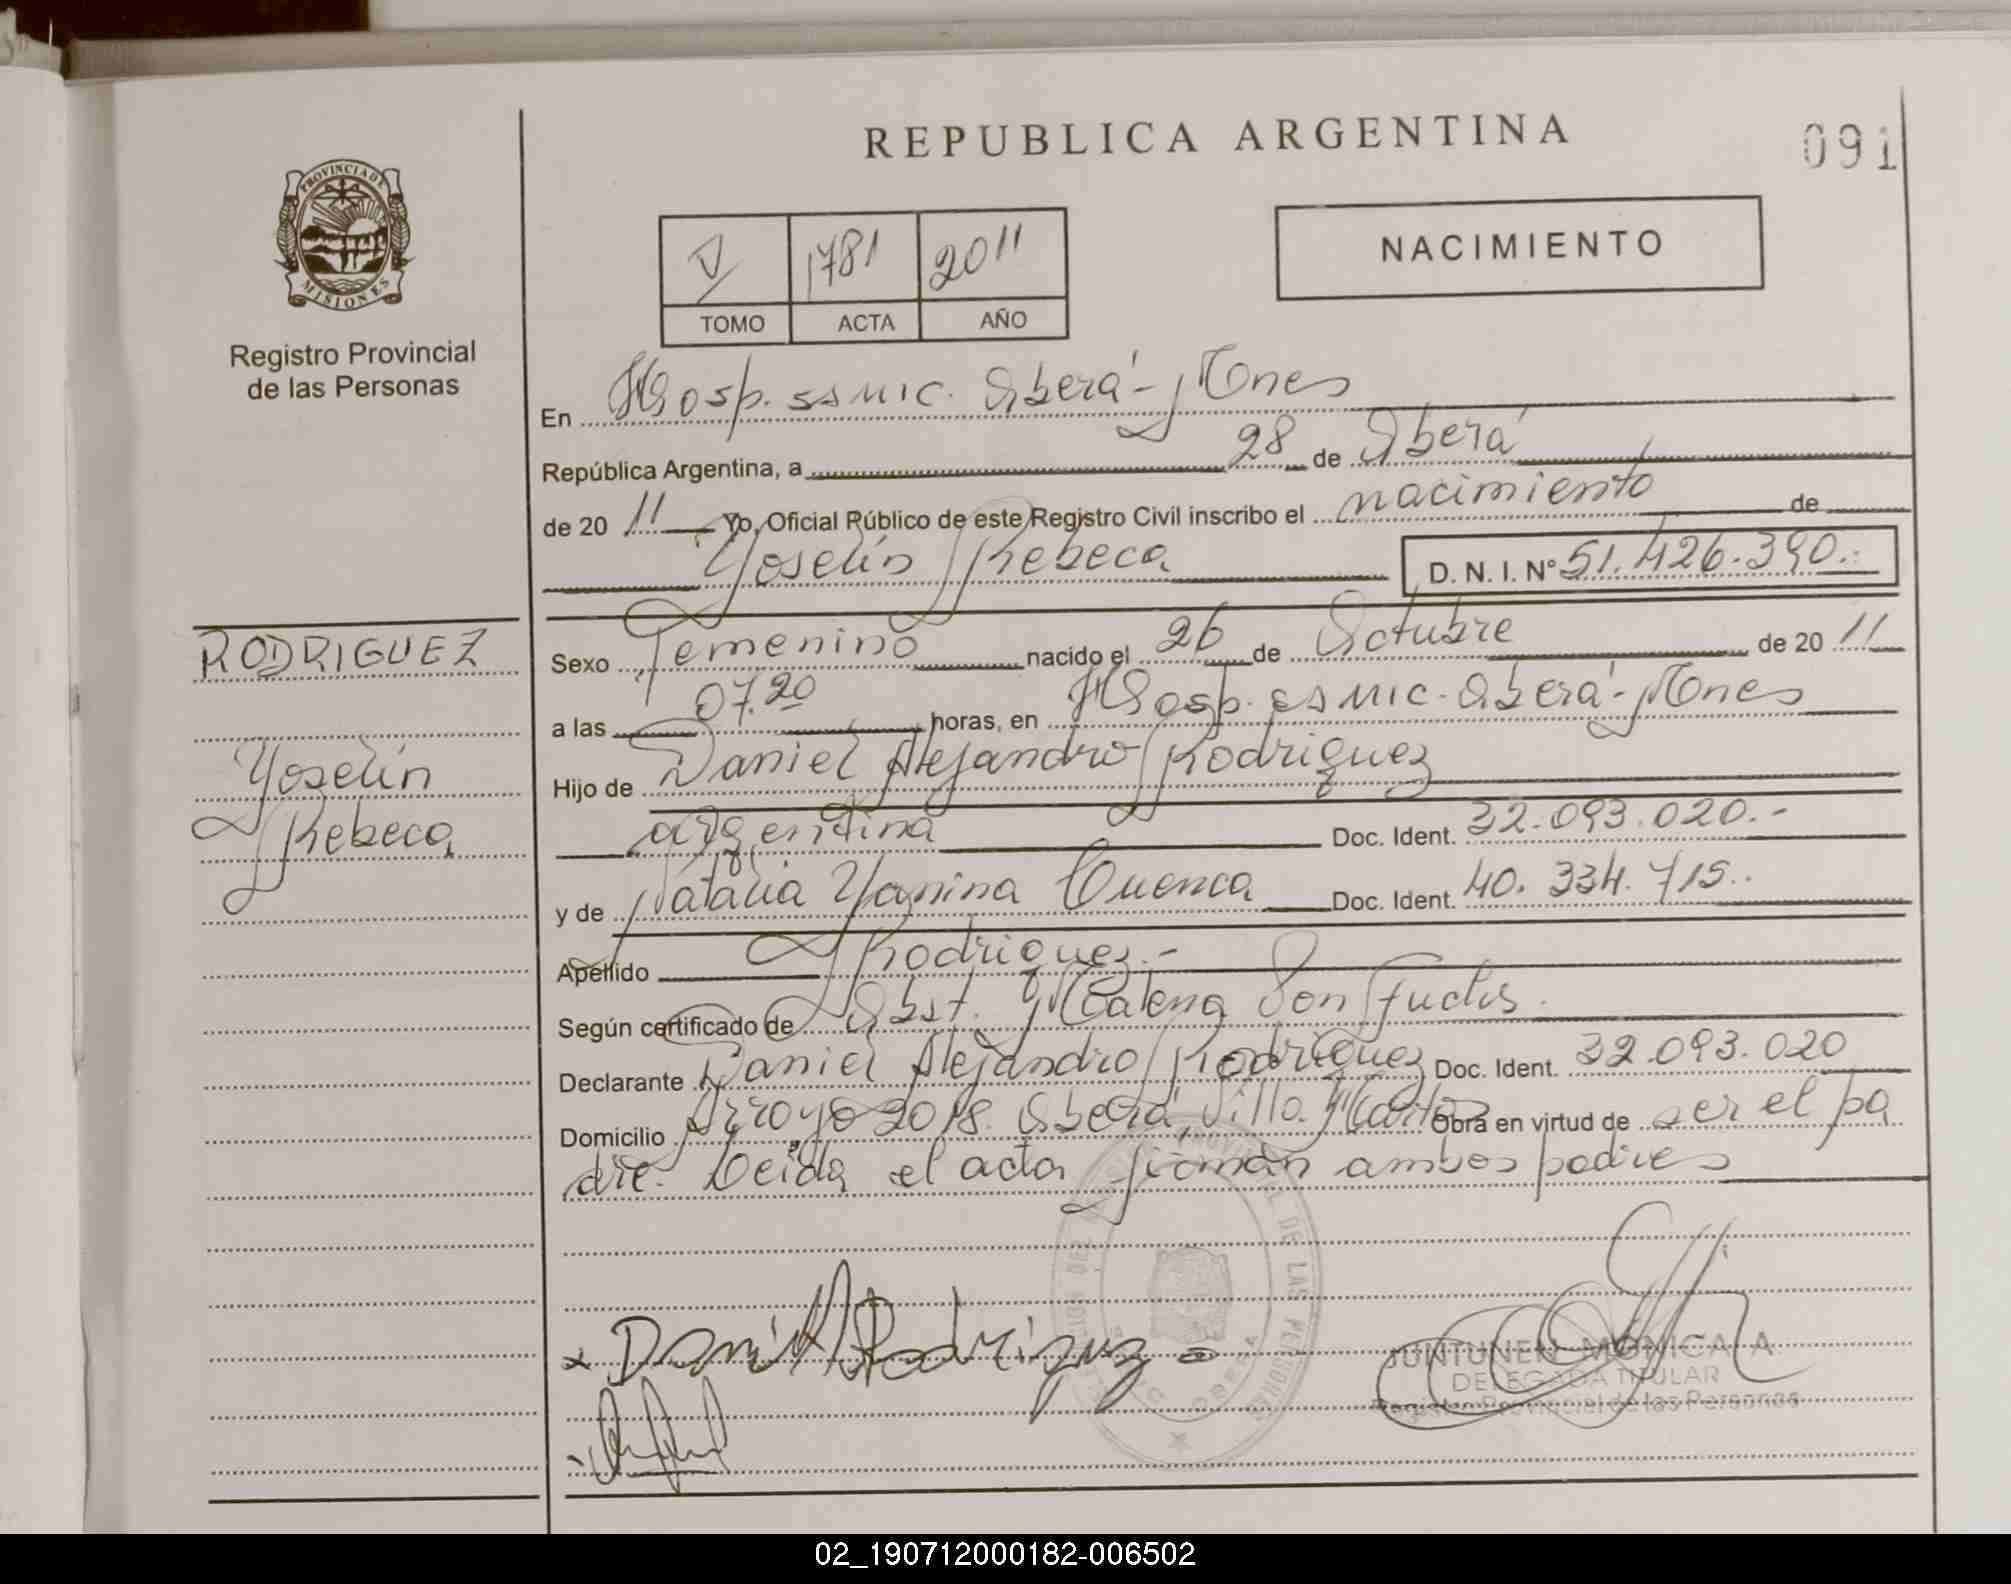 REPUBLICA ARGENTINA
091
PROVINCIA DE
MISIONES
Registro Provincial
de las Personas
V 1781 2011
TOMO ACTA AÑO
NACIMIENTO
En Hosp. ssmic. Oberá - Mnes
República Argentina, a 28 de Oberá
de 20 11 Yo, Oficial Público de este Registro Civil inscribo el nacimiento de
Yoselín Rebeca D. N. I. Nº 51.426.390.-
RODRIGUEZ
Yoselín
Rebeca
Sexo Femenino nacido el 26 de Octubre de 20 11
a las 07.20 horas, en Hosp. ssmic - Oberá - Mnes
Hijo de Daniel Alejandro Rodriguez
argentina Doc. Ident. 32.093.020.-
y de Natalia Yanina Cuenca Doc. Ident. 40.334.715.
Apellido Rodriguez.-
Según certificado de Obst.
Declarante Daniel Alejandro Rodriguez Doc. Ident. 32.093.020
Domicilio Arroyo 2018. Oberá, Villa Obra en virtud de ser el pa
dre. Leida el acta firman ambos padres
Daniel A Rodriguez
DE LAS PERSONAS
OBERA
JUNTUNEN MONICA A
DELEGADA TITULAR
Registro Provincial de las Personas
02_190712000182-006502